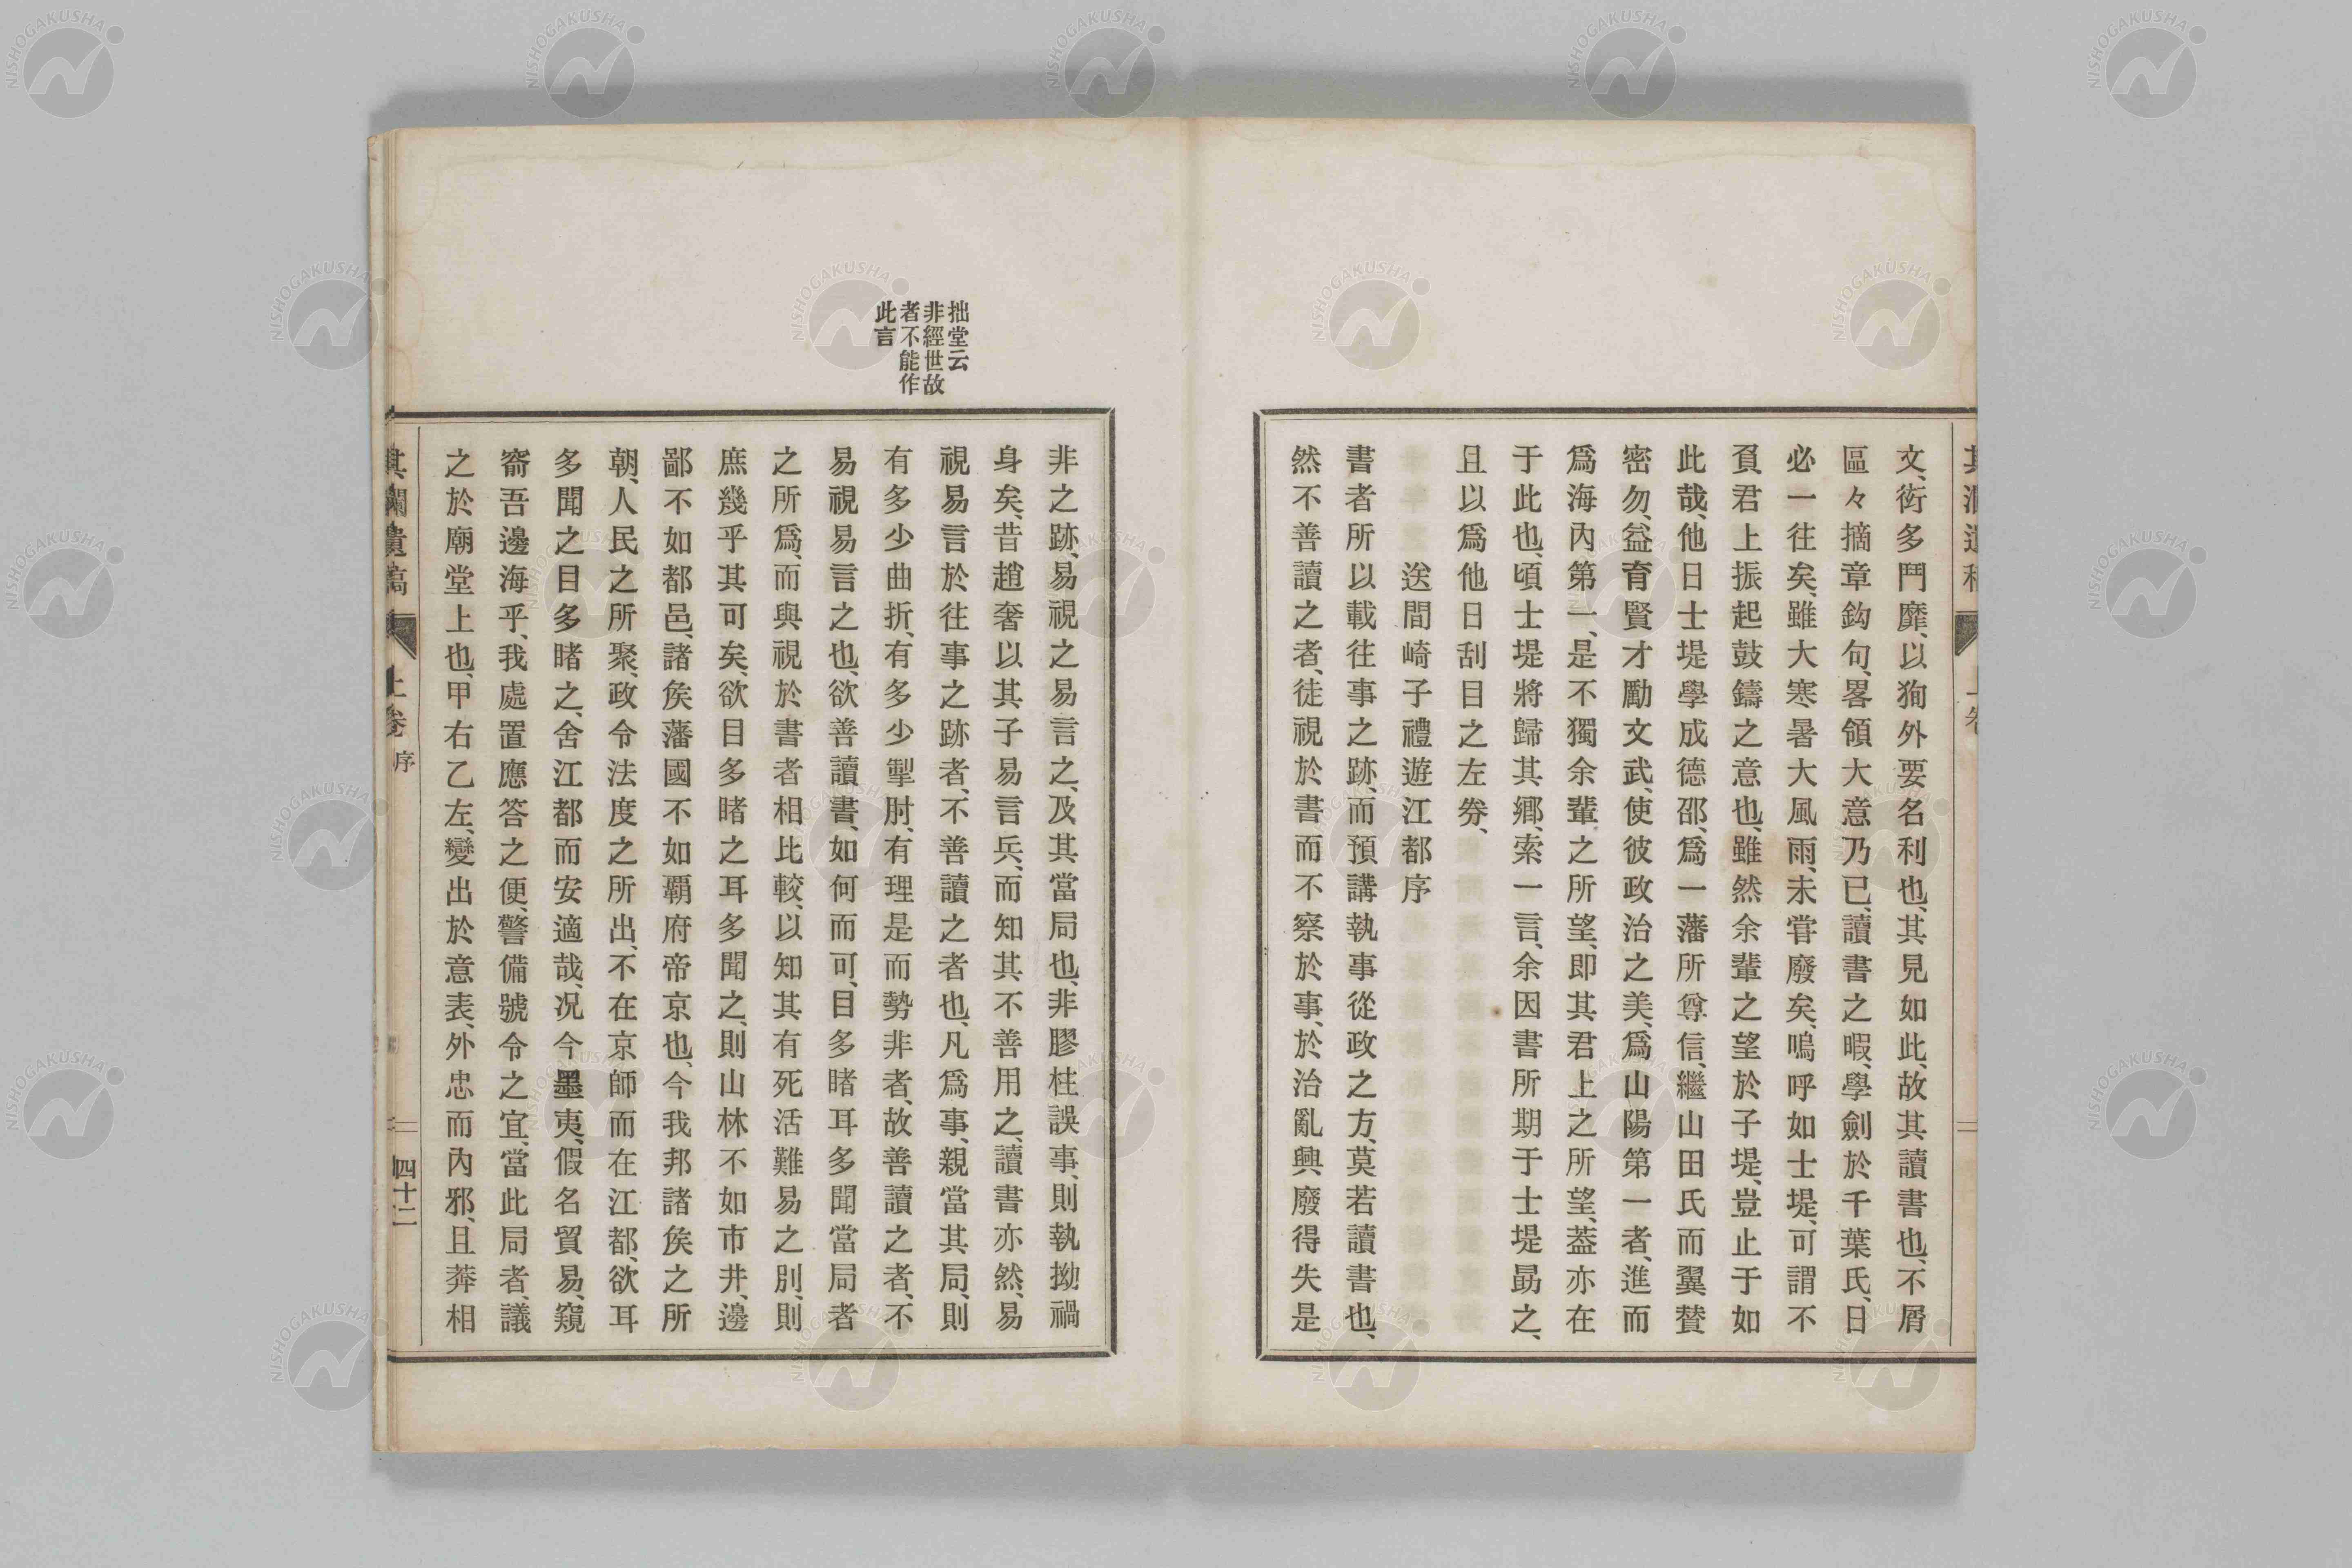 文、衒多鬥靡、以狥外要名利也、其見如此、故其讀書也、不屑
區々摘章鈎句、畧領大意乃已、讀書之暇、學劍於千葉氏、日
必一往矣、雖大寒暑大風雨、未嘗廢矣、嗚呼如士堤、可謂不
負君上振起鼓鑄之意也、雖然余輩之望於子堤、豈止于如
此哉、他日士堤學成德邵、爲一藩所尊信、繼山田氏而翼贊
密勿、益育賢才勵文武、使彼政治之美、爲山陽第一者、進而
爲海內第一、是不獨余輩之所望、即其君上之所望、葢亦在
于此也、頃士堤將歸其鄉、索一言、余因書所期于士堤勗之、
且以爲他日刮目之左劵、
送間崎子禮遊江都序
書者所以載往事之跡、而預講執事從政之方、莫若讀書也、
然不善讀之者、徒視於書而不察於事、於治亂興廢得失是
非之跡、易視之易言之、及其當局也、非膠柱誤事、則執拗禍
身矣、昔趙奢以其子易言兵、而知其不善用之、讀書亦然、易
視易言於往事之跡者、不善讀之者也、凡爲事、親當其局、則
有多少曲折、有多少掣肘、有理是而勢非者、故善讀之者、不
易視易言之也、欲善讀書、如何而可、目多睹耳多聞當局者
之所爲、而與視於書者相比較、以知其有死活難易之別、則
庶幾乎其可矣、欲目多睹之耳多聞之、則山林不如市井、邊
鄙不如都邑、諸矦藩國不如覇府帝京也、今我邦諸矦之所
朝、人民之所聚、政令法度之所出、不在京師而在江都、欲耳
多聞之目多睹之、舍江都而安適哉、况今墨夷、假名貿易、窺
窬吾邊海乎、我處置應答之便、警備號令之宜、當此局者、議
之於廟堂上也、甲右乙左、變出於意表、外忠而內邪、且莽相
拙堂云
非經世故
者不能作
此言
上卷
序
四十二
NISHOGAKUSHA